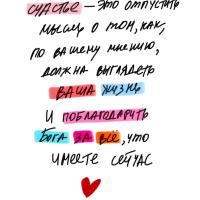 СЧАСТЬЕ — ЭТО ОТПУСТИТЬ
МЫСЛИ О ТОМ, КАК,
ПО ВАШЕМУ МНЕНИЮ,
ДОЛЖНА ВЫГЛЯДЕТЬ
ВАША ЖИЗНЬ
И ПОБЛАГОДАРИТЬ
БОГА ЗА ВСЁ, ЧТО
ИМЕЕТЕ СЕЙЧАС